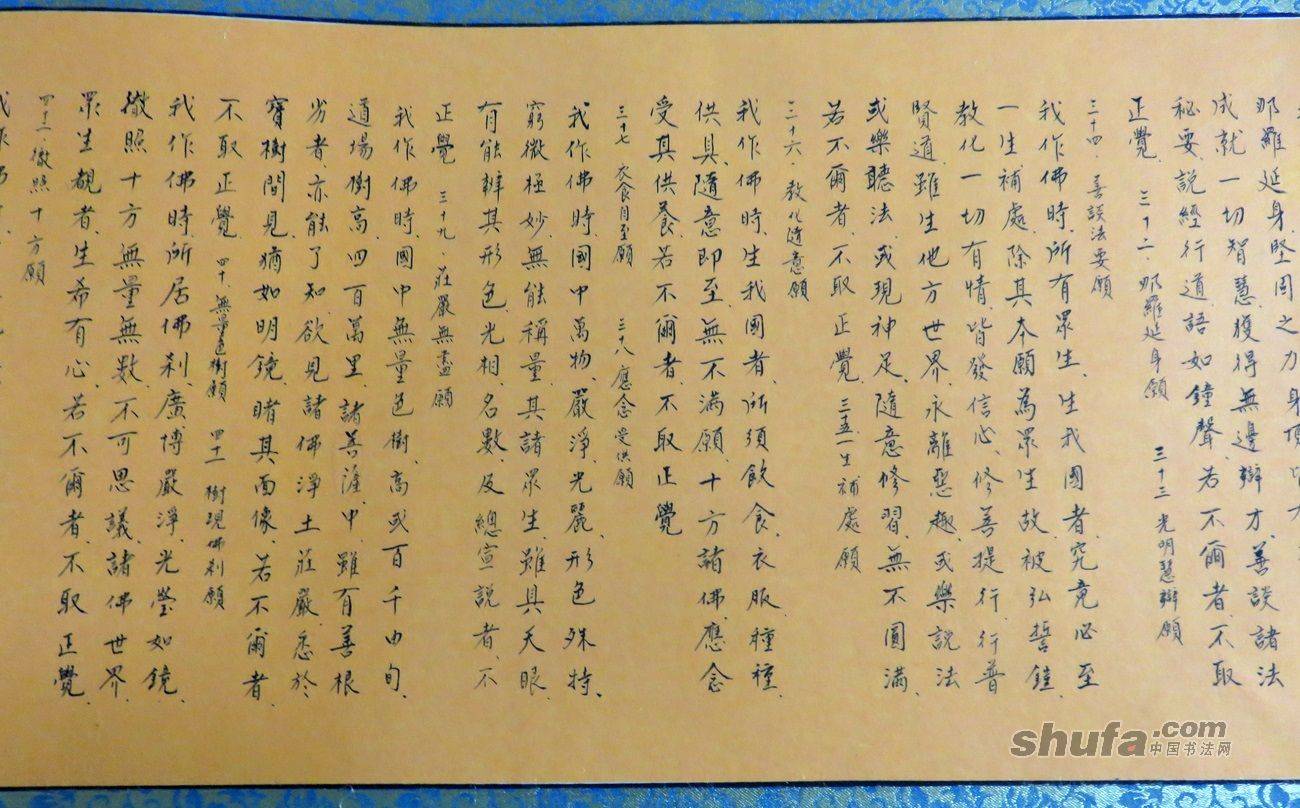 那羅延身堅固之力身頂
成就一切智慧獲得無邊辯才善談諸法
秘要、説經行道、語如鐘聲、若不爾者、不取
正覺、 三十二·那羅延身願 三十三 光明慧辯願
三十四·善談法要願
我作佛時、所有眾生、生我國者、究竟必至
一生補處、除其本願為眾生故、被弘誓鎧、
教化一切有情、皆發信心、修菩提行、行普
賢道、雖生他方世界、永離惡趣、或樂説法
或樂聽法、或現神足、隨意修習、無不圓滿、
若不爾者、不取正覺、 三五一生補處願
三十六·教化隨意願
我作佛時、生我國者、所須飲食、衣服、種種
供具、隨意即至、無不满願、十方諸佛、應念
受其供養、若不爾者、不取正覺
三十七 衣食自至願 三十八應念受供願
我作佛時、國中萬物、嚴淨、光麗、形色殊特、
窮微極妙、無能稱量、其諸眾生、雖具天眼、
有能辨其形色、光相、名數、及總宣説者、不
正覺 三十九·莊嚴無盡願
我作佛時、國中無量色樹、高或百千由旬、
道場樹高、四百萬里、諸菩薩中、雖有善根
劣者、亦能了知、欲見諸佛淨土莊嚴、悉於
寶樹間見、猶如明鏡、睹其面像、若不爾者、
不取正覺、 四十·無量色樹願 四十一 樹現佛刹願
我作佛時、所居佛刹、廣博嚴淨、光瑩如鏡、
徹照十方無量無數、不可思議諸佛世界、
眾生覩者、生希有心、若不爾者、不取正覺、
四十二·徹照十方願
shufa.com
中国书法网